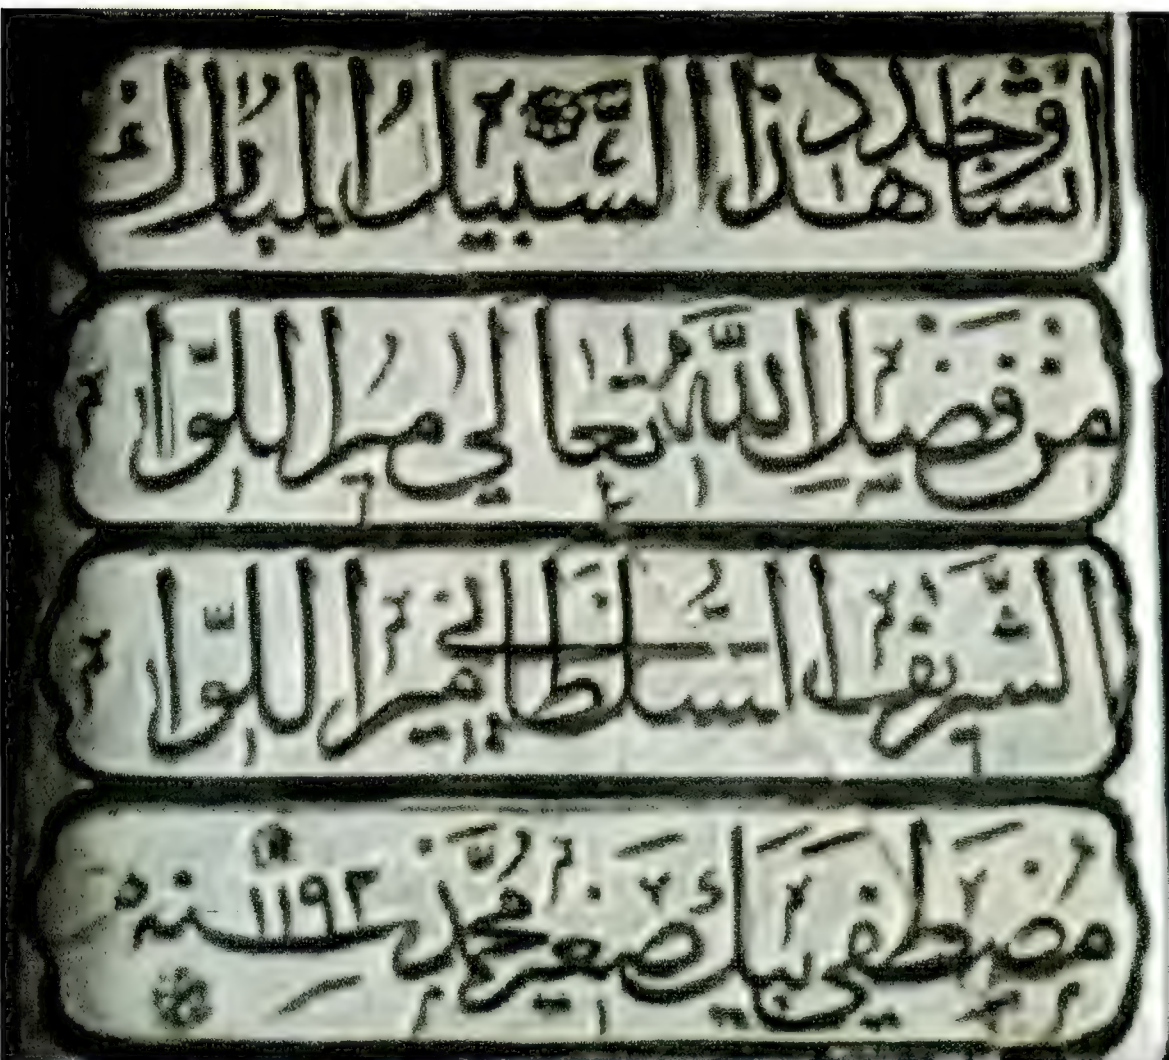 انشا وجدد هذا السبيل المبارك
من فضل الله تعالي مير اللوا
الشريف السلطاني مير اللوا
مصطفي بيك صغير محمد سنه ١١٩٣